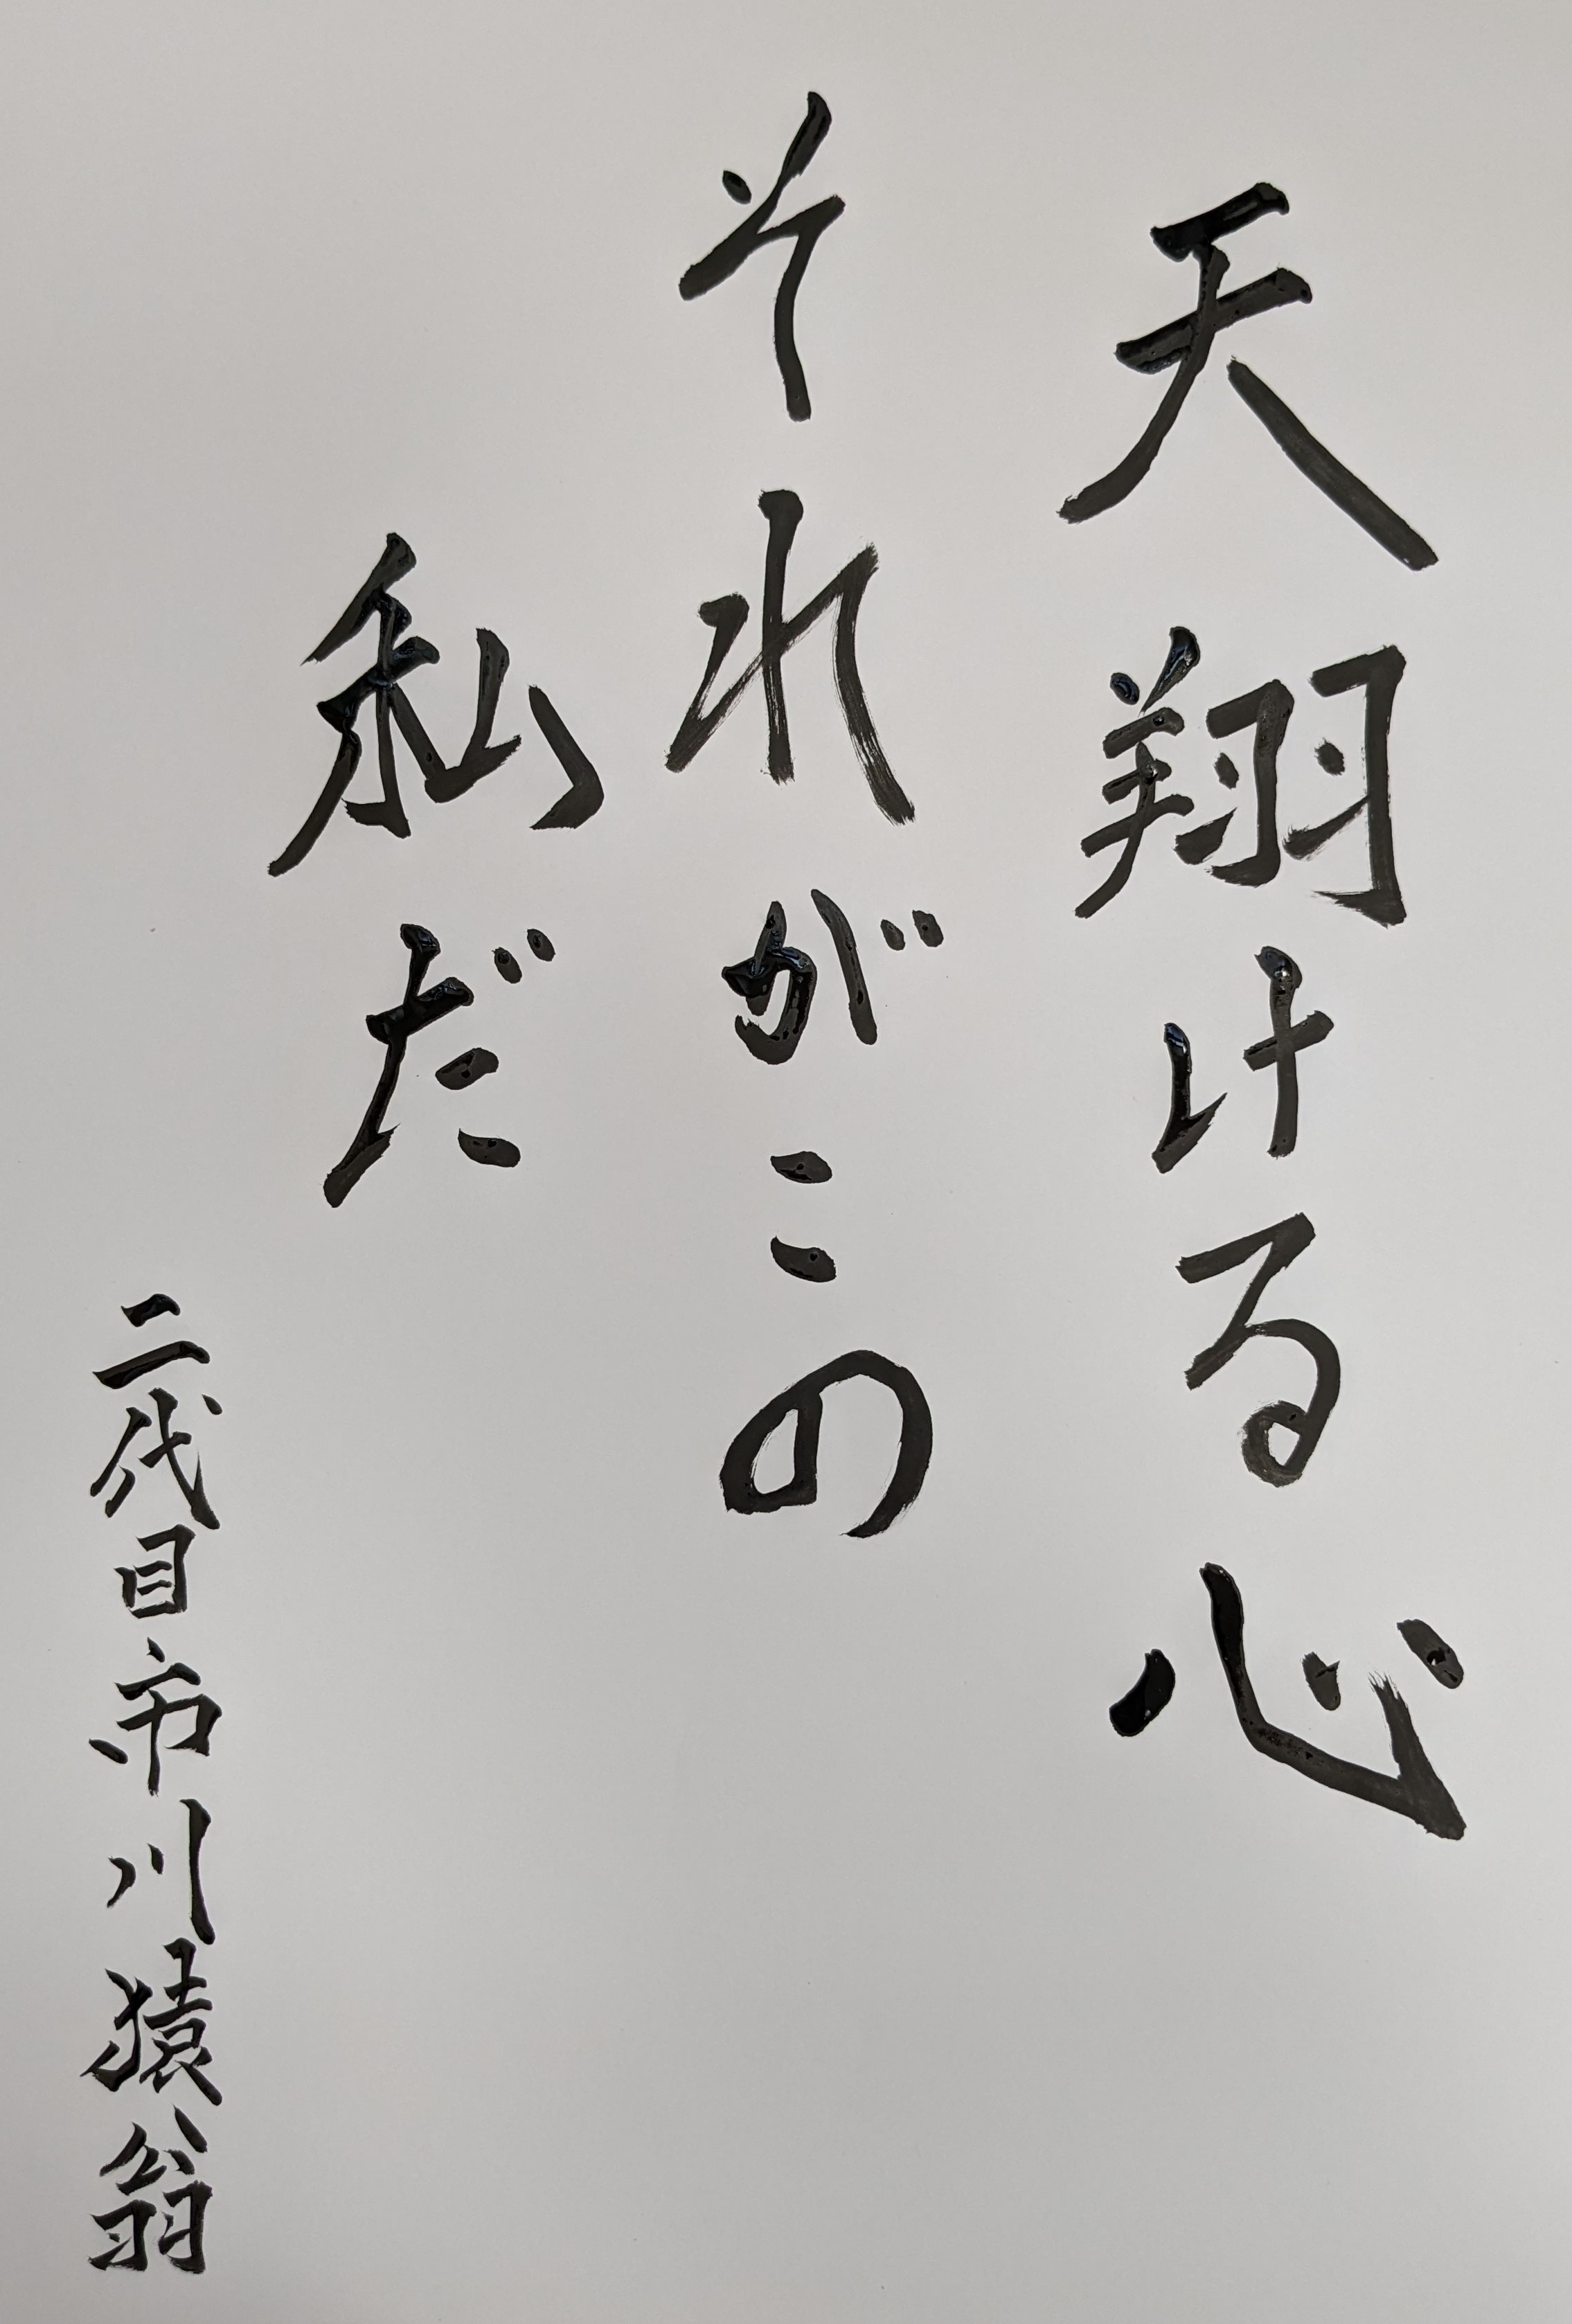 天翔ける心
それがこの
私だ
二代目市川猿翁